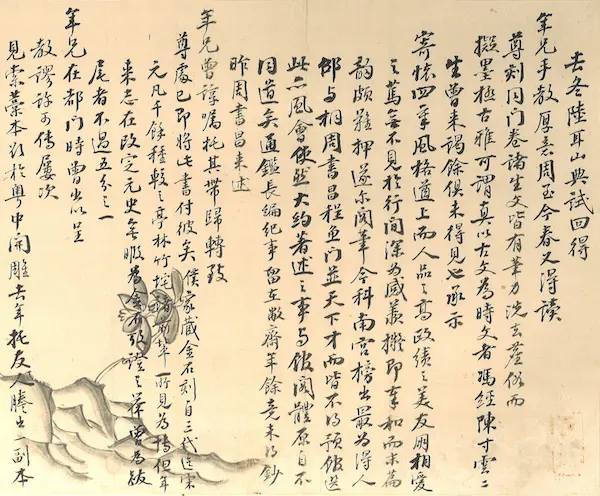 去冬陸耳山典試回得
年兄手教厚意周至今春又得讀
尊刻同門卷諸生文皆有筆力洗去蹊俗而
擬墨極古雅可謂真以古文為時文者馮經陳寸雲二
生曾來謁餘俱未得見也承示
寄懷四章風格道上而人品之高政績之美友朋相愛
之篤無不見於行間深為感羨擬即奉和而末篇
韵頗難押遂爾閣筆今科南宮榜出最為得人
邵與桐周書昌程魚門並天下才而皆不得預館選
此亦風會使然大約著述之事與館閣體原自不
同道矣通鑑長編紀事留在敝齋年餘竟未得鈔
昨周書昌來述
年兄曾諄囑托其帶歸轉致
尊處已即將此書付彼矣僕家藏金石刻自三代迄宋
元凡千餘種較之亭林竹垞諸
所見為博但年
來志在改定元史無暇
為跋
尾者不過五分之一
年兄在都門時曾出以呈
教謬許可傳屢次
見索棄本欲於粵中開雕去年托友人謄出一副本